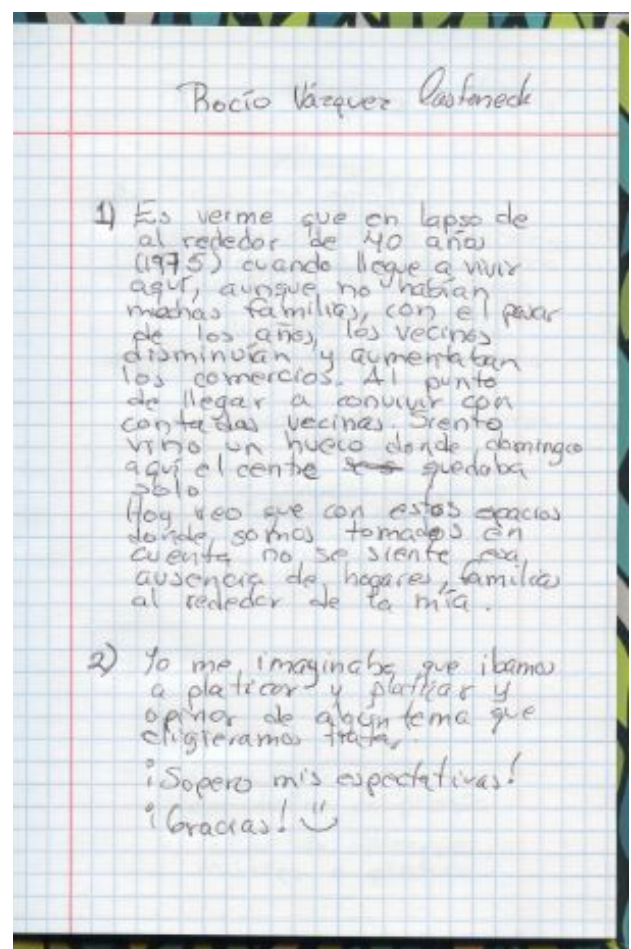 Rocío Vázquez
1) Es verme que en lapso de
al rededor de 40 años
(1975) cuando llegue a vivir
aquí, aunque no habían
muchas familias, con el pasar
de los años, los vecinos
disminuían y aumentaban
los comercios. Al punto
de llegar a convivir con
contadas vecinas. Siento
vino un hueco donde domingo
aquí el centre quedaba
solo
Hoy veo que con estos espacios
donde somos tomados en
cuenta no se siente esa
ausencia de hogares, familias
al rededor de la mía.
2) Yo me imaginaba que ibamos
a platicar y platicar y
opinar de algún tema que
eligieramos tratar.
¡Sopero mis expectativas!
¡Gracias!